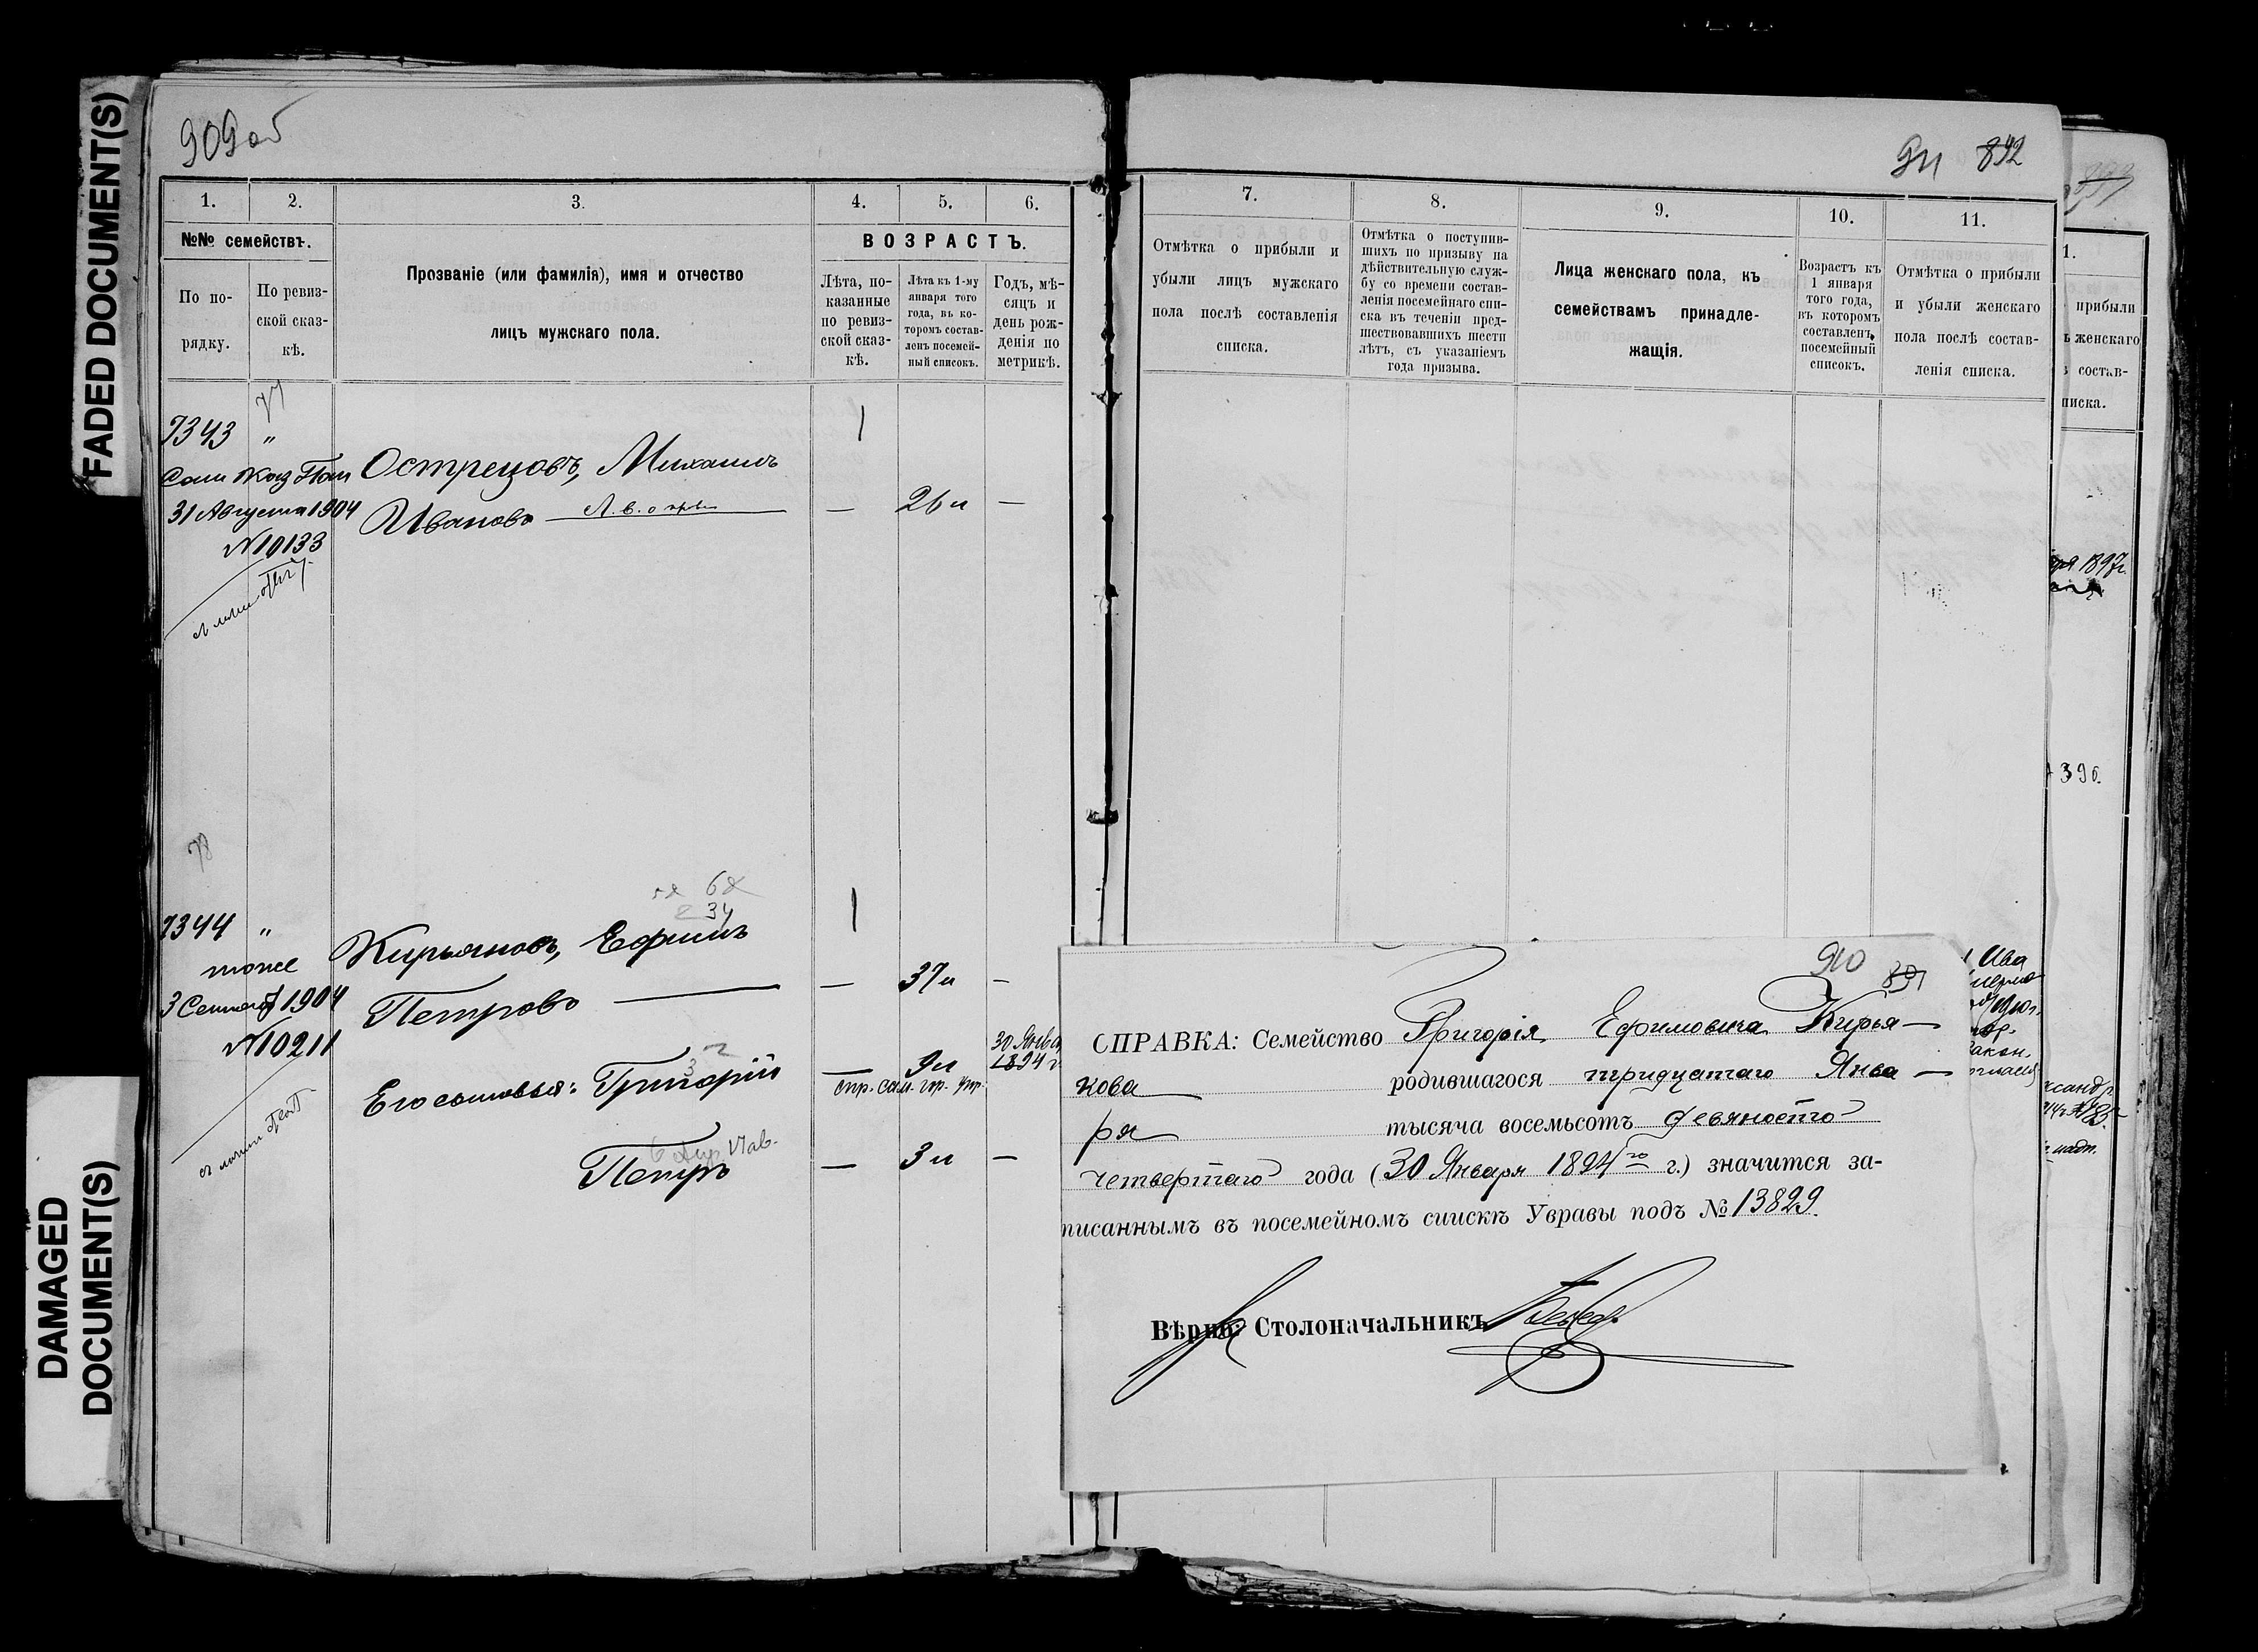 FADED DOCUMENT(S)
DAMAGED
DOCUMENT(S)
909об
1. 2. 3. 4. 5. 6.
№№ семействъ.
По по-
рядку.
По ревиз-
ской сказ-
кѣ.
Прозваніе (или фамилія), имя и отчество
лицъ мужскаго пола.
ВОЗРАСТЪ.
Лѣта, по-
казанные
по ревиз-
ской сказ-
кѣ.
Лѣта къ 1-му
января того
года, въ ко-
торомъ состав-
ленъ посемей-
ный списокъ.
Годъ, мѣ-
сяцъ и
день рож-
денія по
метрикѣ.
77
7343 "
Сам Каз Пал
31 Августа 1904
№10133
Острецовъ, Михаилъ
Ивановъ — 26 л —
78
7344 "
тоже
3 Сентяб 1904
№10211
68
34
Кирьяновъ, Ефимъ
Петровъ — 37 л —
Его сыновья: Григорій — 9 л 30 Янв
1894 г
спр. Сам. гр. упр.
Петръ — 3 л —
911 892
7. 8. 9. 10. 11.
Отмѣтка о прибыли и
убыли лицъ мужскаго
пола послѣ составленія
списка.
Отмѣтка о поступив-
шихъ по призыву на
дѣйствительную служ-
бу со времени состав-
ленія посемейнаго спи-
ска въ теченіи пред-
шествовавшихъ шести
лѣтъ, съ указаніемъ
года призыва.
Лица женскаго пола, къ
семействамъ принадле-
жащія.
Возрастъ къ
1 января
того года,
въ которомъ
составленъ
посемейный
списокъ.
Отмѣтка о прибыли
и убыли женскаго
пола послѣ состав-
ленія списка.
910 891
СПРАВКА: Семейство Григорія Ефимовича Кирья-
нова родившагося тридцатаго Янва-
ря тысяча восемьсотъ девяносто
четвертаго года (30 Января 1894го г.) значится за-
писаннымъ въ посемейномъ спискѣ Управы подъ № 13829.
Вѣрно: Столоначальникъ
893
1.
прибыли
женскаго
состав-
писка.
1897г.
396.